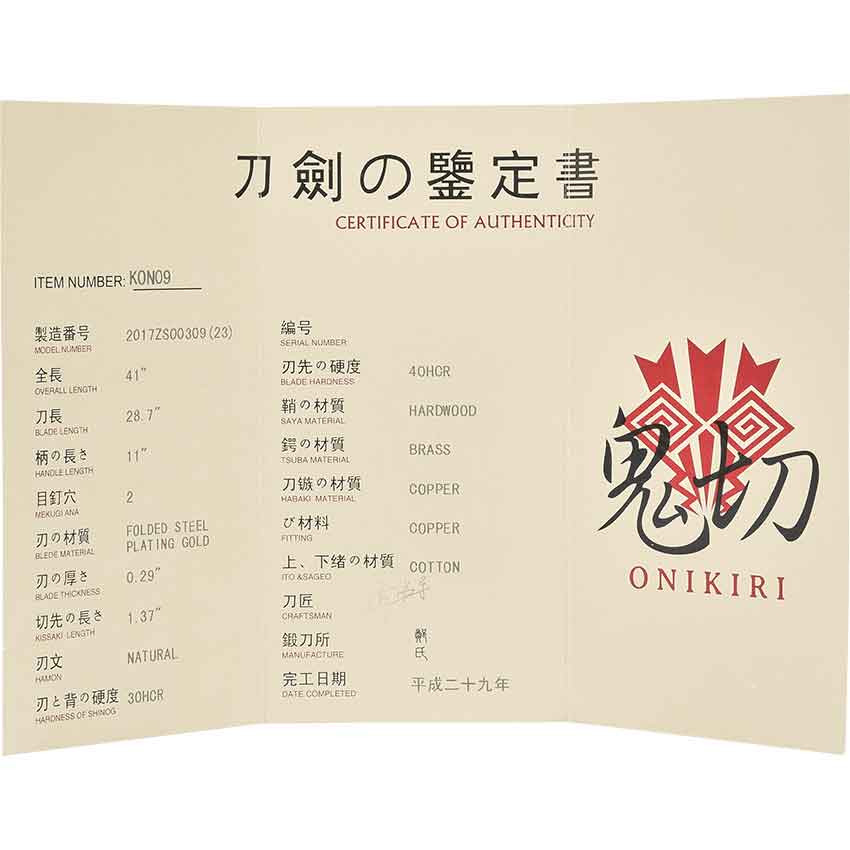 刀劍の鑒定書
CERTIFICATE OF AUTHENTICITY
ITEM NUMBER: KON09
製造番号 2017ZS00309(23)
MODEL NUMBER
全長 41"
OVERALL LENGTH
刀長 28.7"
BLADE LENGTH
柄の長さ 11"
HANDLE LENGTH
目釘穴 2
MEKUGI ANA
刃の材質 FOLDED STEEL
PLATING GOLD
BLEDE MATERIAL
刃の厚さ 0.29"
BLADE THICKNESS
切先の長さ 1.37"
KISSAKI LENGTH
刃文 NATURAL
HAMON
刃と背の硬度 30HCR
HARDNESS OF SHINOG
編号
SERIAL NUMBER
刃先の硬度 40HCR
BLADE HARDNESS
鞘の材質 HARDWOOD
SAYA MATERIAL
鍔の材質 BRASS
TSUBA MATERIAL
刀镞の材質 COPPER
HABAKI MATERIAL
び材料 COPPER
FITTING
上、下绪の材質 COTTON
ITO &SAGEO
刀匠
CRAFTSMAN
鍛刀所
MANUFACTURE
鄭氏
完工日期 平成二十九年
DATE COMPLETED
鬼切
ONIKIRI